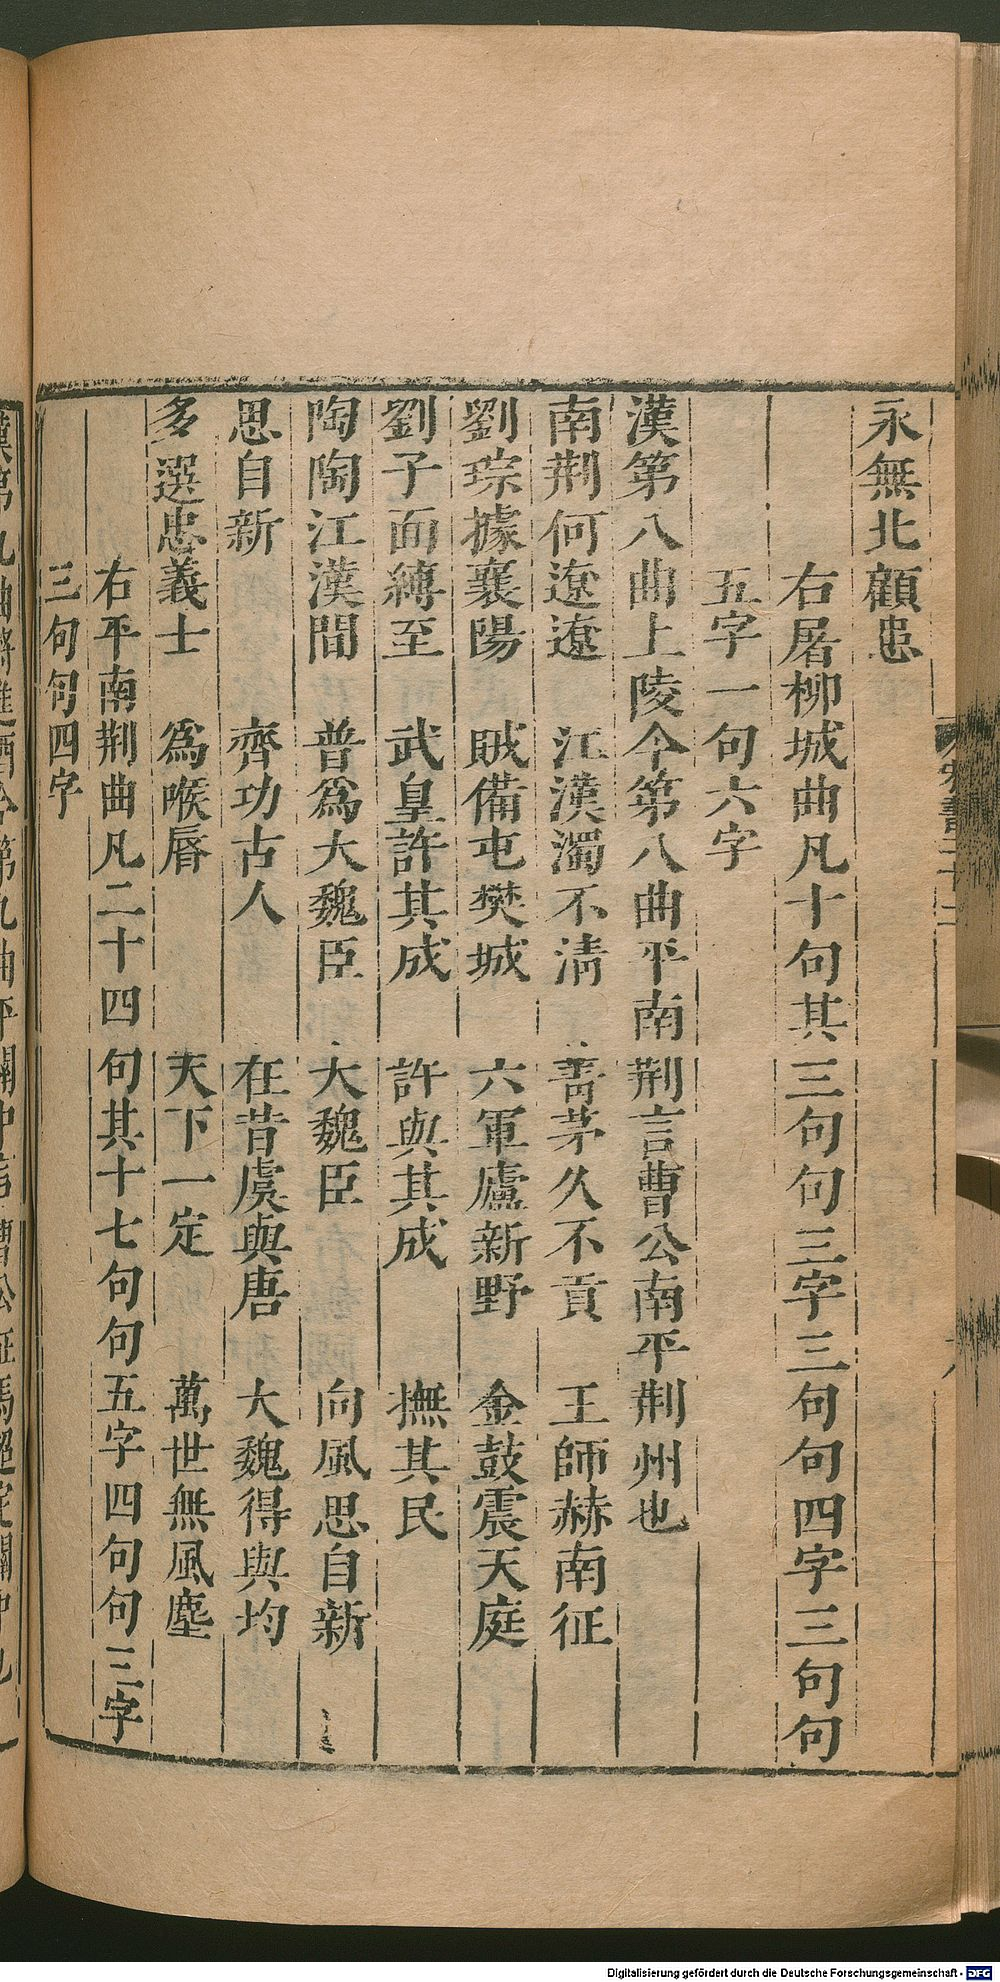 永無北顧患
右屠柳城曲凡十句其三句句三字三句句四字三句句
五字一句六字
漢第八曲上陵今第八曲平南荆言曹公南平荆州也
南荆何遼遼　江漢濁不清　菁茅久不貢　王師赫南征
劉琮據襄陽　賊備屯樊城　六軍廬新野　金鼓震天庭
劉子面縛至　武皇許其成　許與其成　撫其民
陶陶江漢間　普爲大魏臣　大魏臣　向風思自新
思自新　齊功古人　在昔虞與唐　大魏得與均
多選忠義士　爲喉脣　天下一定　萬世無風塵
右平南荆曲凡二十四句其十七句句五字四句句三字
三句句四字
Digitalisierung gefördert durch die Deutsche Forschungsgemeinschaft - DFG